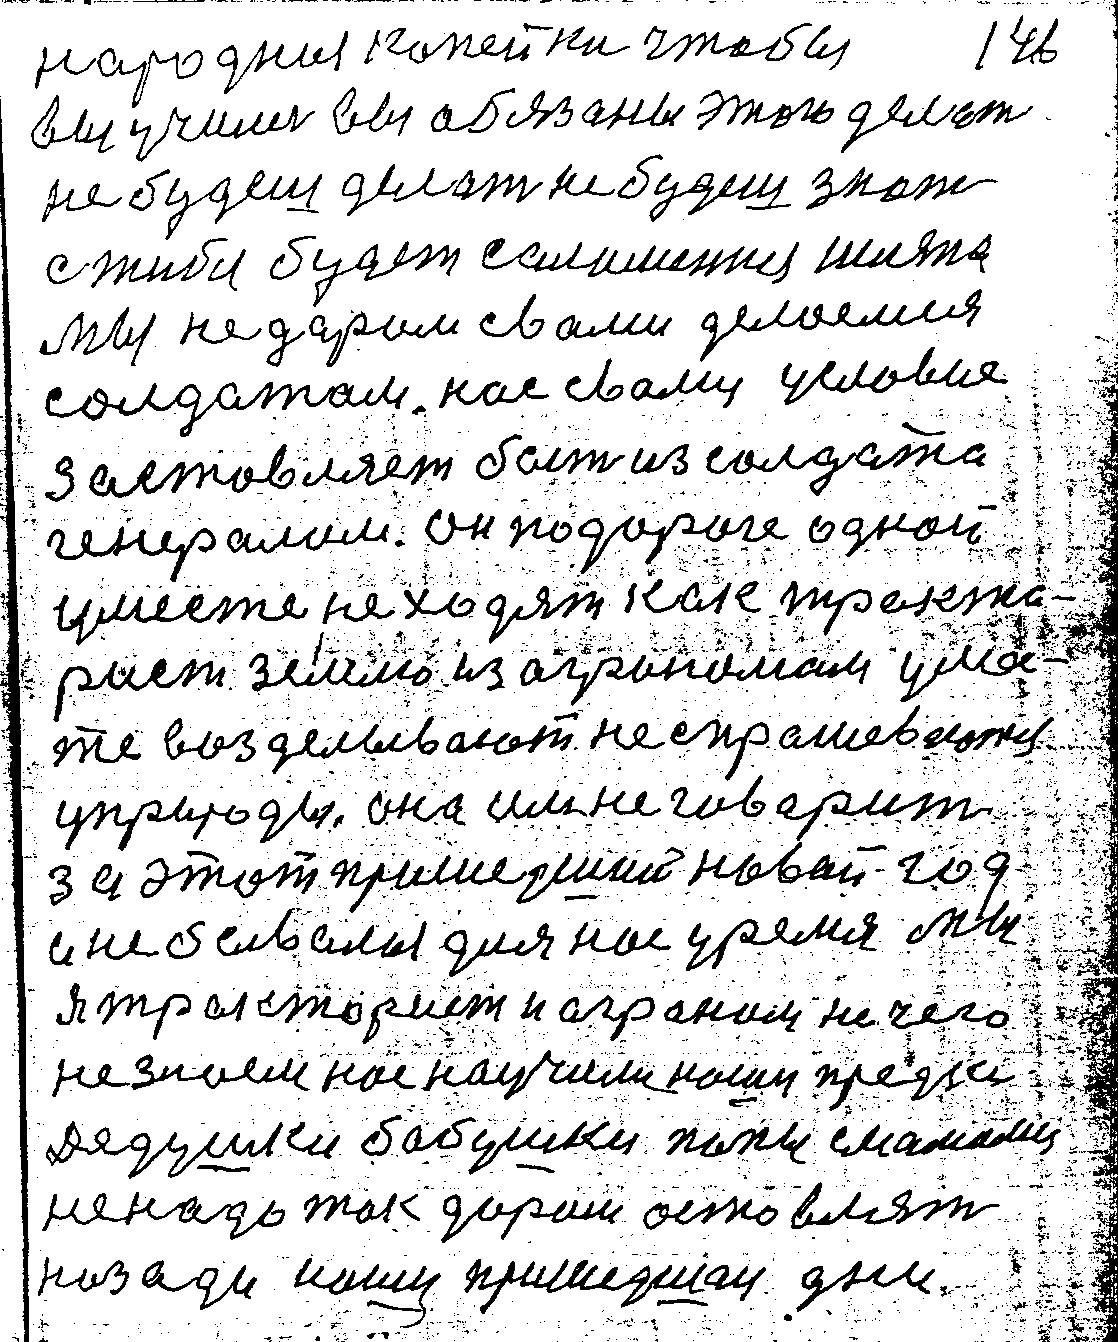 народныи копейки чтобы 146
вы учили вы обязаны этого делат
не будеш делат не будеш знат
с тибя будет саломенная шляпа
мы не даром с вами делаемся
солдатам. нас с вами условие
заставляет быт из солдата
генералом. Он по дороге одной
уместе не ходят как тракто-
рист землю из агрономам ума-
те возделывают не спрашеваются
у природы. она им не говарит
за этот пришедший новай год
и не бывалыя для нас уремя мы
я тракторист и аграном не чего
не знаем нас научили наши предки
Дедушки бабушки папы с мамами
не надо так даром оставлят
назади наши пришедшаи дни.